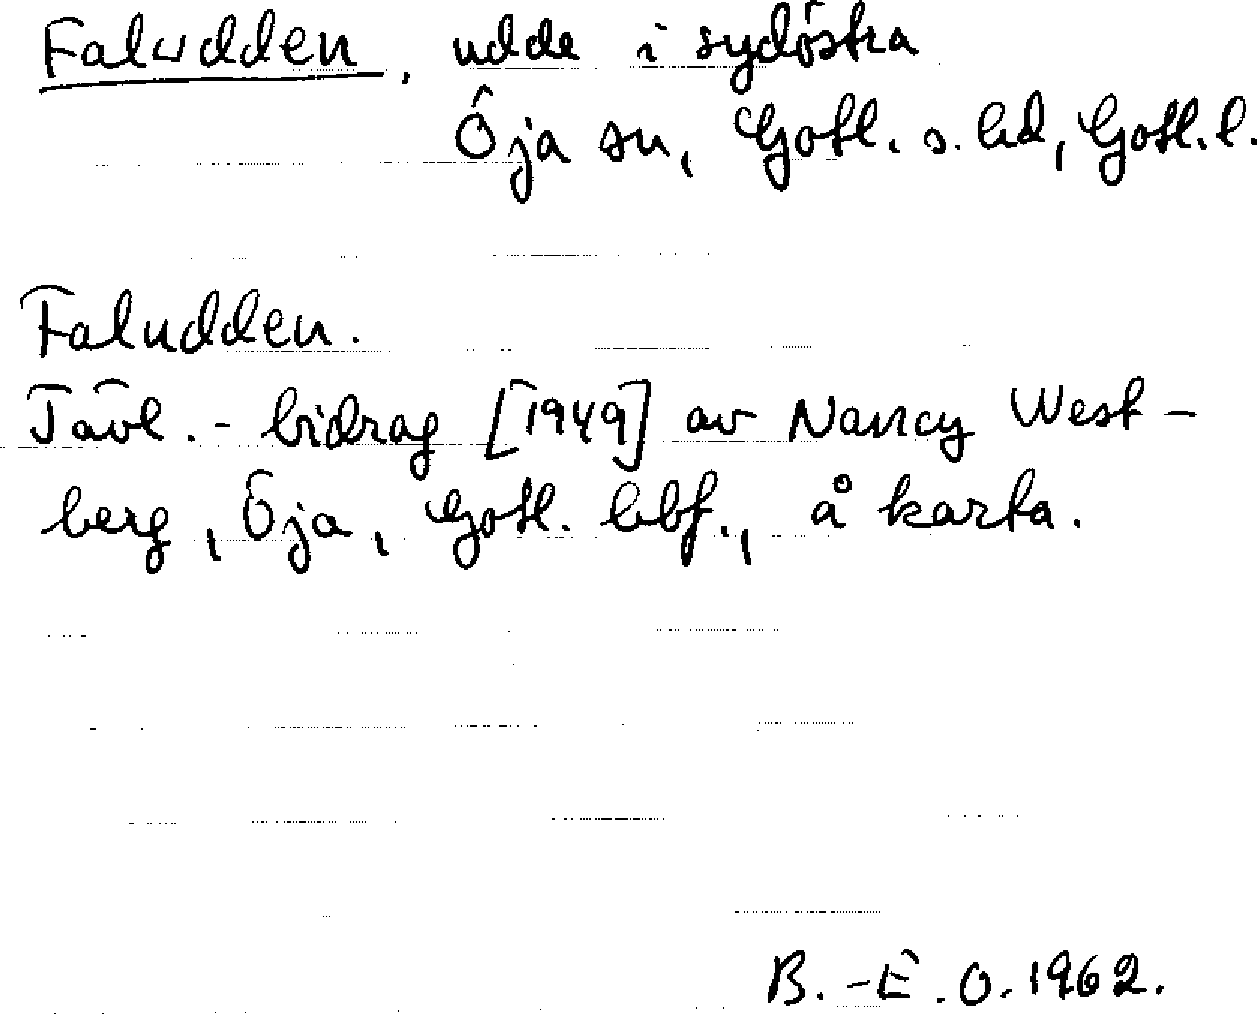 Faludden, udde i sydöstra
Öja sn, Gotl. s. hd, Gotl. l.
Faludden.
Tävl.-bidrag [1949] av Nancy West-
berg, Öja, Gotl. hbf., å karta.
B.-E. O. 1962.